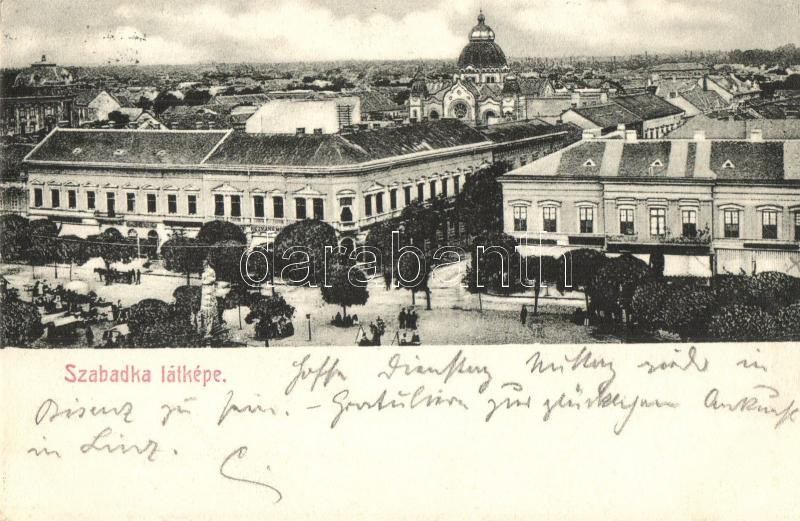 darabanth
Szabadka látképe.
Hoffe Dienstag Mittag in
zu sein. – Gratuliere zur glücklichen Ankunft
in Linz.